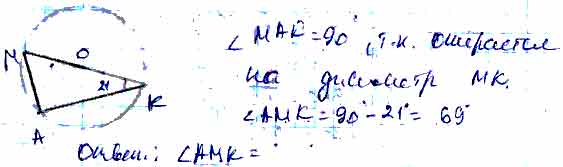 ∠MAK = 90°, т.к. опирается
на диаметр MK.
∠AMK = 90° - 21° = 69°
M
O
21
K
A
Ответ: ∠AMK =